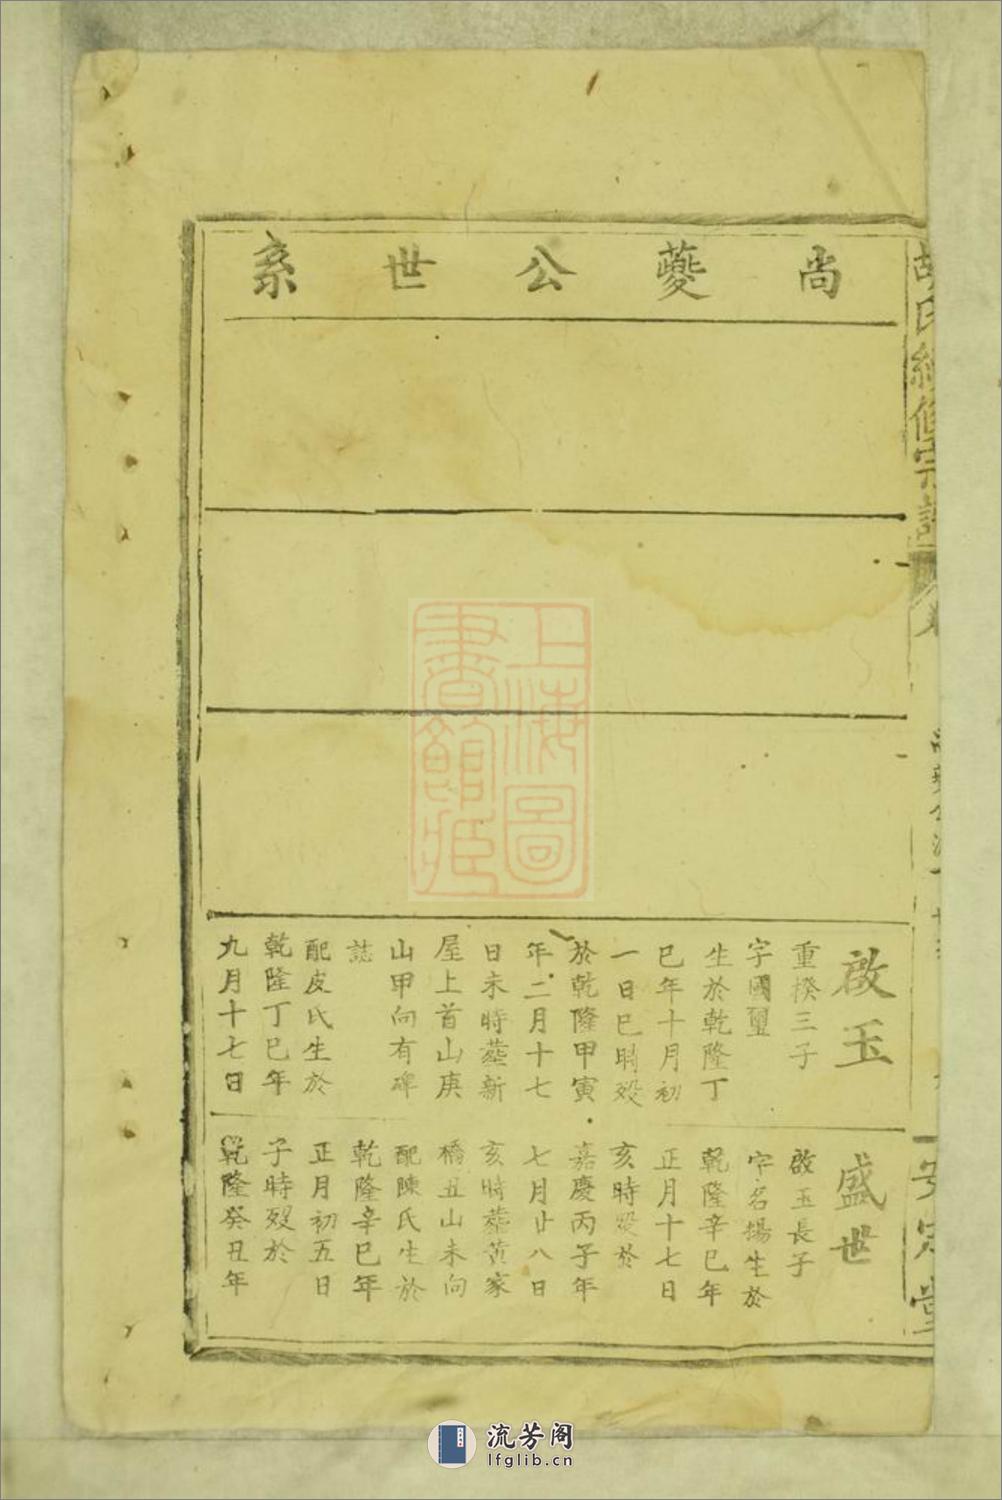 尚夔公世系
啟玉
重揆三子
字國璽
生於乾隆丁
巳年十月初
一日巳時歿
於乾隆甲寅
年二月十七
日未時葬新
屋上首山庚
山甲向有碑
誌
配皮氏生於
乾隆丁巳年
九月十七日
盛世
啟玉長子
字名揚生於
乾隆辛巳年
正月十七日
亥時歿於
嘉慶丙子年
七月廿八日
亥時葬黃家
橋丑山未向
配陳氏生於
乾隆辛巳年
正月初五日
子時歿於
乾隆癸丑年
上海圖
書館藏
流芳阁
lfglib.cn